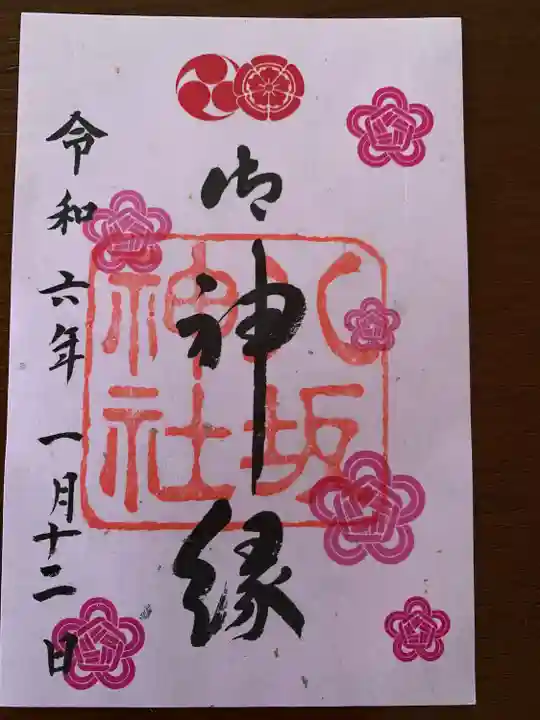 御神縁
八坂
神社
令和六年一月十二日